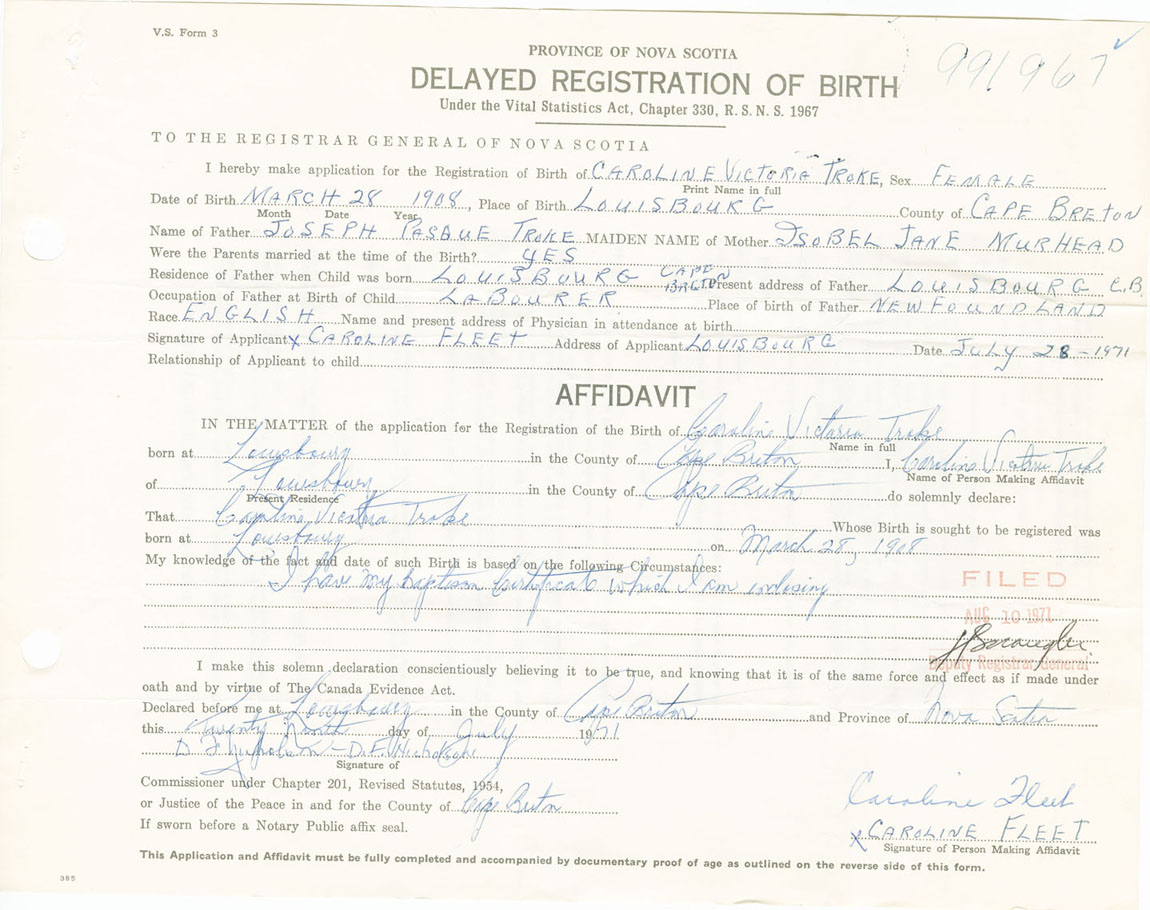 V.S. Form 3
991967
PROVINCE OF NOVA SCOTIA
DELAYED REGISTRATION OF BIRTH
Under the Vital Statistics Act, Chapter 330, R.S.N.S. 1967
TO THE REGISTRAR GENERAL OF NOVA SCOTIA
I hereby make application for the Registration of Birth of CAROLINE VICTORIA TROKE, Sex FEMALE
Print Name in full
Date of Birth MARCH 28 1908, Place of Birth LOUISBOURG County of CAPE BRETON
Month Date Year
Name of Father JOSEPH PASQUE TROKE MAIDEN NAME of Mother ISOBEL JANE MURHEAD
Were the Parents married at the time of the Birth? YES
Residence of Father when Child was born LOUISBOURG CAPE BRETON Present address of Father LOUISBOURG C.B.
Occupation of Father at Birth of Child LABOURER Place of birth of Father NEWFOUNDLAND
Race ENGLISH Name and present address of Physician in attendance at birth
Signature of Applicant x CAROLINE FLEET Address of Applicant LOUISBOURG Date JULY 28-1971
Relationship of Applicant to child
AFFIDAVIT
IN THE MATTER of the application for the Registration of the Birth of Caroline Victoria Troke
Name in full
born at Louisbourg in the County of Cape Breton I, Caroline Victoria Troke
Name of Person Making Affidavit
of Louisbourg in the County of Cape Breton do solemnly declare:
Present Residence
That Caroline Victoria Troke Whose Birth is sought to be registered was
born at Louisbourg on March 28, 1908
My knowledge of the fact and date of such Birth is based on the following Circumstances:
I have my baptism Certificate which I am enclosing
FILED
AUG 10 1971
Deputy Registrar General
I make this solemn declaration conscientiously believing it to be true, and knowing that it is of the same force and effect as if made under
oath and by virtue of The Canada Evidence Act.
Declared before me at Louisbourg in the County of Cape Breton and Province of Nova Scotia
this Twenty day of July 1971
D F Nicholson - D.F. Nicholson
Signature of
Commissioner under Chapter 201, Revised Statutes, 1954,
or Justice of the Peace in and for the County of Cape Breton
If sworn before a Notary Public affix seal.
Caroline Fleet
x CAROLINE FLEET
Signature of Person Making Affidavit
This Application and Affidavit must be fully completed and accompanied by documentary proof of age as outlined on the reverse side of this form.
385